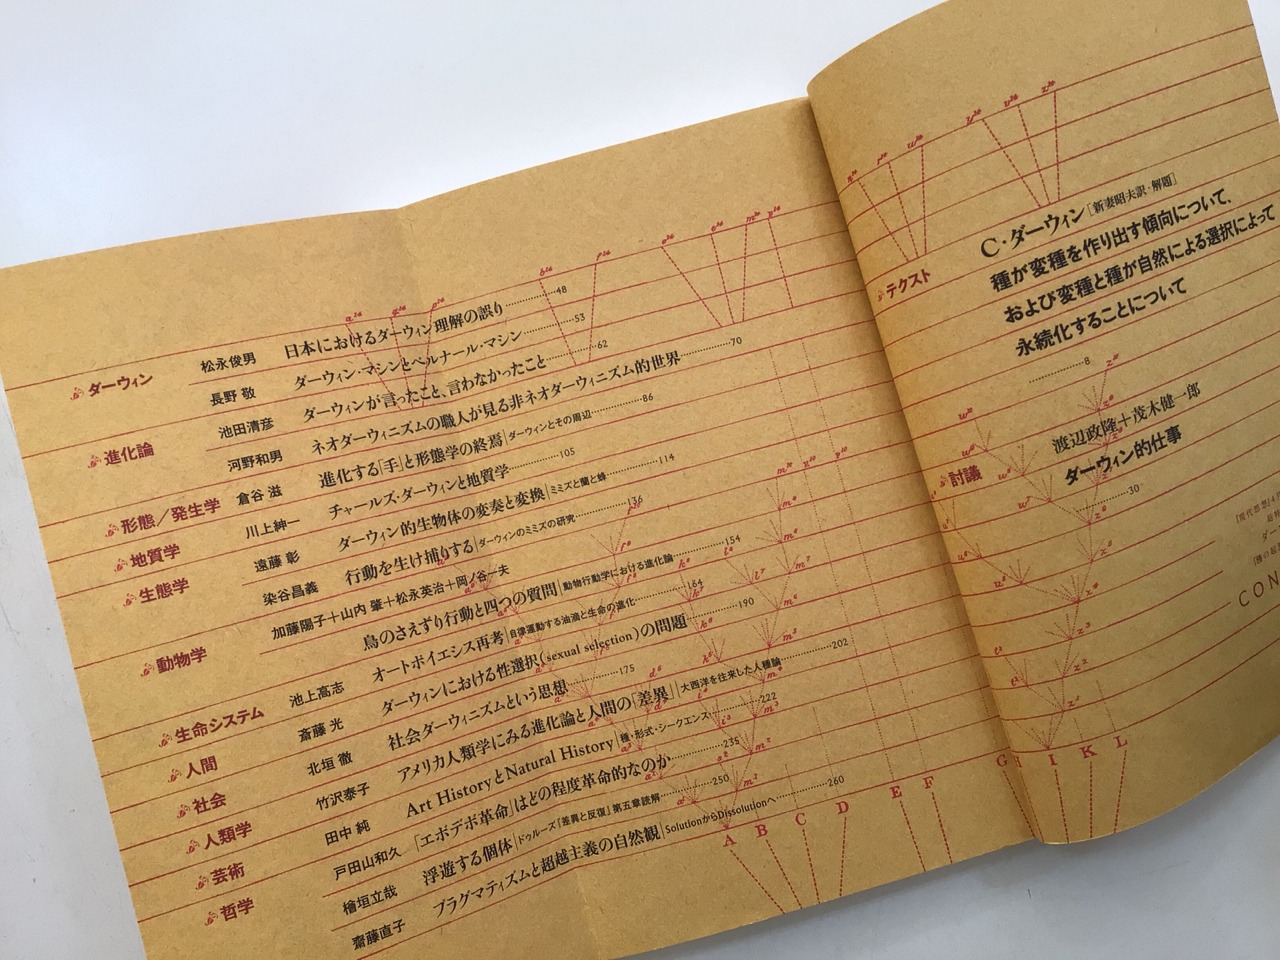 テクスト
C・ダーウィン[新妻昭夫訳・解題]
種が変種を作り出す傾向について、
および変種と種が自然による選択によって
永続化することについて
8
討議
渡辺政隆+茂木健一郎
ダーウィン的仕事
30
CON
ダーウィン
松永俊男 日本におけるダーウィン理解の誤り 48
長野 敬 ダーウィン・マシンとベルナール・マシン 53
進化論
池田清彦 ダーウィンが言ったこと、言わなかったこと 62
河野和男 ネオダーウィニズムの職人が見る非ネオダーウィニズム的世界 70
形態/発生学
倉谷 滋 進化する「手」と形態学の終焉|ダーウィンとその周辺 86
地質学
川上紳一 チャールズ・ダーウィンと地質学 105
生態学
遠藤 彰 ダーウィン的生物体の変奏と変換|ミミズと蘭と蜂 114
染谷昌義 行動を生け捕りする|ダーウィンのミミズの研究 136
動物学
加藤陽子+山内 肇+松永英治+岡ノ谷一夫
鳥のさえずり行動と四つの質問|動物行動学における進化論 154
生命システム
池上高志 オートポイエシス再考|自律運動する油滴と生命の進化 164
人間
斎藤 光 ダーウィンにおける性選択(sexual selection)の問題 190
社会
北垣 徹 社会ダーウィニズムという思想 175
人類学
竹沢泰子 アメリカ人類学にみる進化論と人間の「差異」|大西洋を往来した人種論 202
芸術
田中 純 Art HistoryとNatural History|種・形式・シークエンス 222
哲学
戸田山和久 「エボデボ革命」はどの程度革命的なのか 235
檜垣立哉 浮遊する個体|ドゥルーズ『差異と反復』第五章読解 250
齋藤直子 プラグマティズムと超越主義の自然観|SolutionからDissolutionへ 260
A B C D E F G H I K L